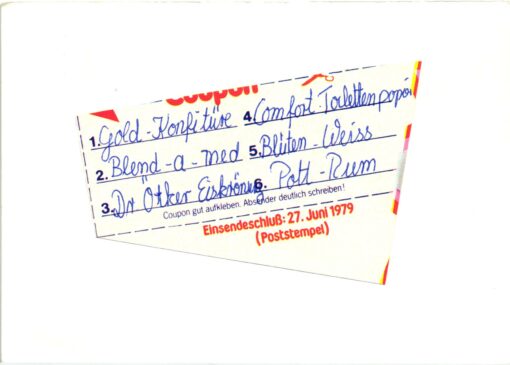 Coupon
1. Gold-Konfitüre 4. Comfort-Toilettenpapier
2. Blend-a-med 5. Blüten-Weiss
3. Dr Ötker Eiskrönung 6. Pott-Rum
Coupon gut aufkleben. Absender deutlich schreiben!
Einsendeschluß: 27. Juni 1979
(Poststempel)